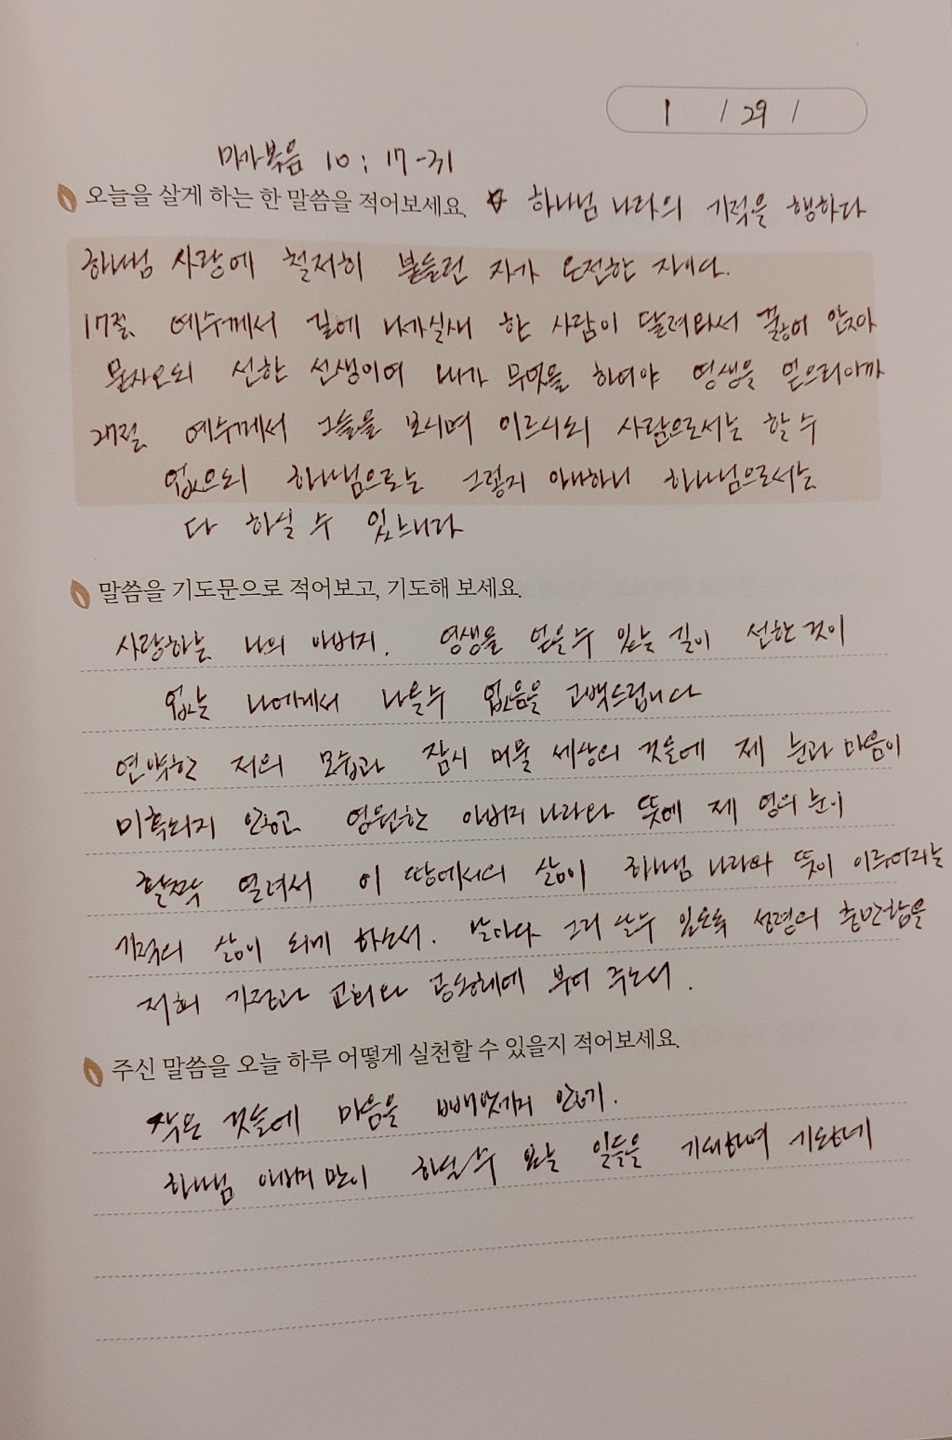 1 / 29 /
마가복음 10 : 17-31
오늘을 살게 하는 한 말씀을 적어보세요. ☆ 하나님 나라의 기적을 행하다
하나님 사랑에 철저히 붙들린 자가 온전한 자이다.
17절. 예수께서 길에 나가실새 한 사람이 달려와서 꿇어 앉자
묻자오되 선한 선생이여 내가 무엇을 하여야 영생을 얻으리이까
27절. 예수께서 그들을 보시며 이르시되 사람으로서는 할 수
없으되 하나님으로는 그렇지 아니하니 하나님으로서는
다 하실 수 있느니라
말씀을 기도문으로 적어보고, 기도해 보세요.
사랑하는 나의 아버지. 영생을 얻을 수 있는 길이 선한 것이
없는 나에게서 나올 수 없음을 고백드립니다
연약한 저의 모습과 잠시 머물 세상의 것들에 제 눈과 마음이
미혹되지 않고 영원한 아버지 나라와 뜻에 제 영의 눈이
활짝 열려서 이 땅에서의 삶이 하나님 나라와 뜻이 이루어지는
기적의 삶이 되게 하소서. 날마다 그리 살 수 있도록 성령의 충만함을
저희 가정과 교회와 공동체에 부어 주소서.
주신 말씀을 오늘 하루 어떻게 실천할 수 있을지 적어보세요.
작은 것들에 마음을 빼앗기지 않기.
하나님 아버지만이 하실 수 있는 일들을 기대하며 기도하기